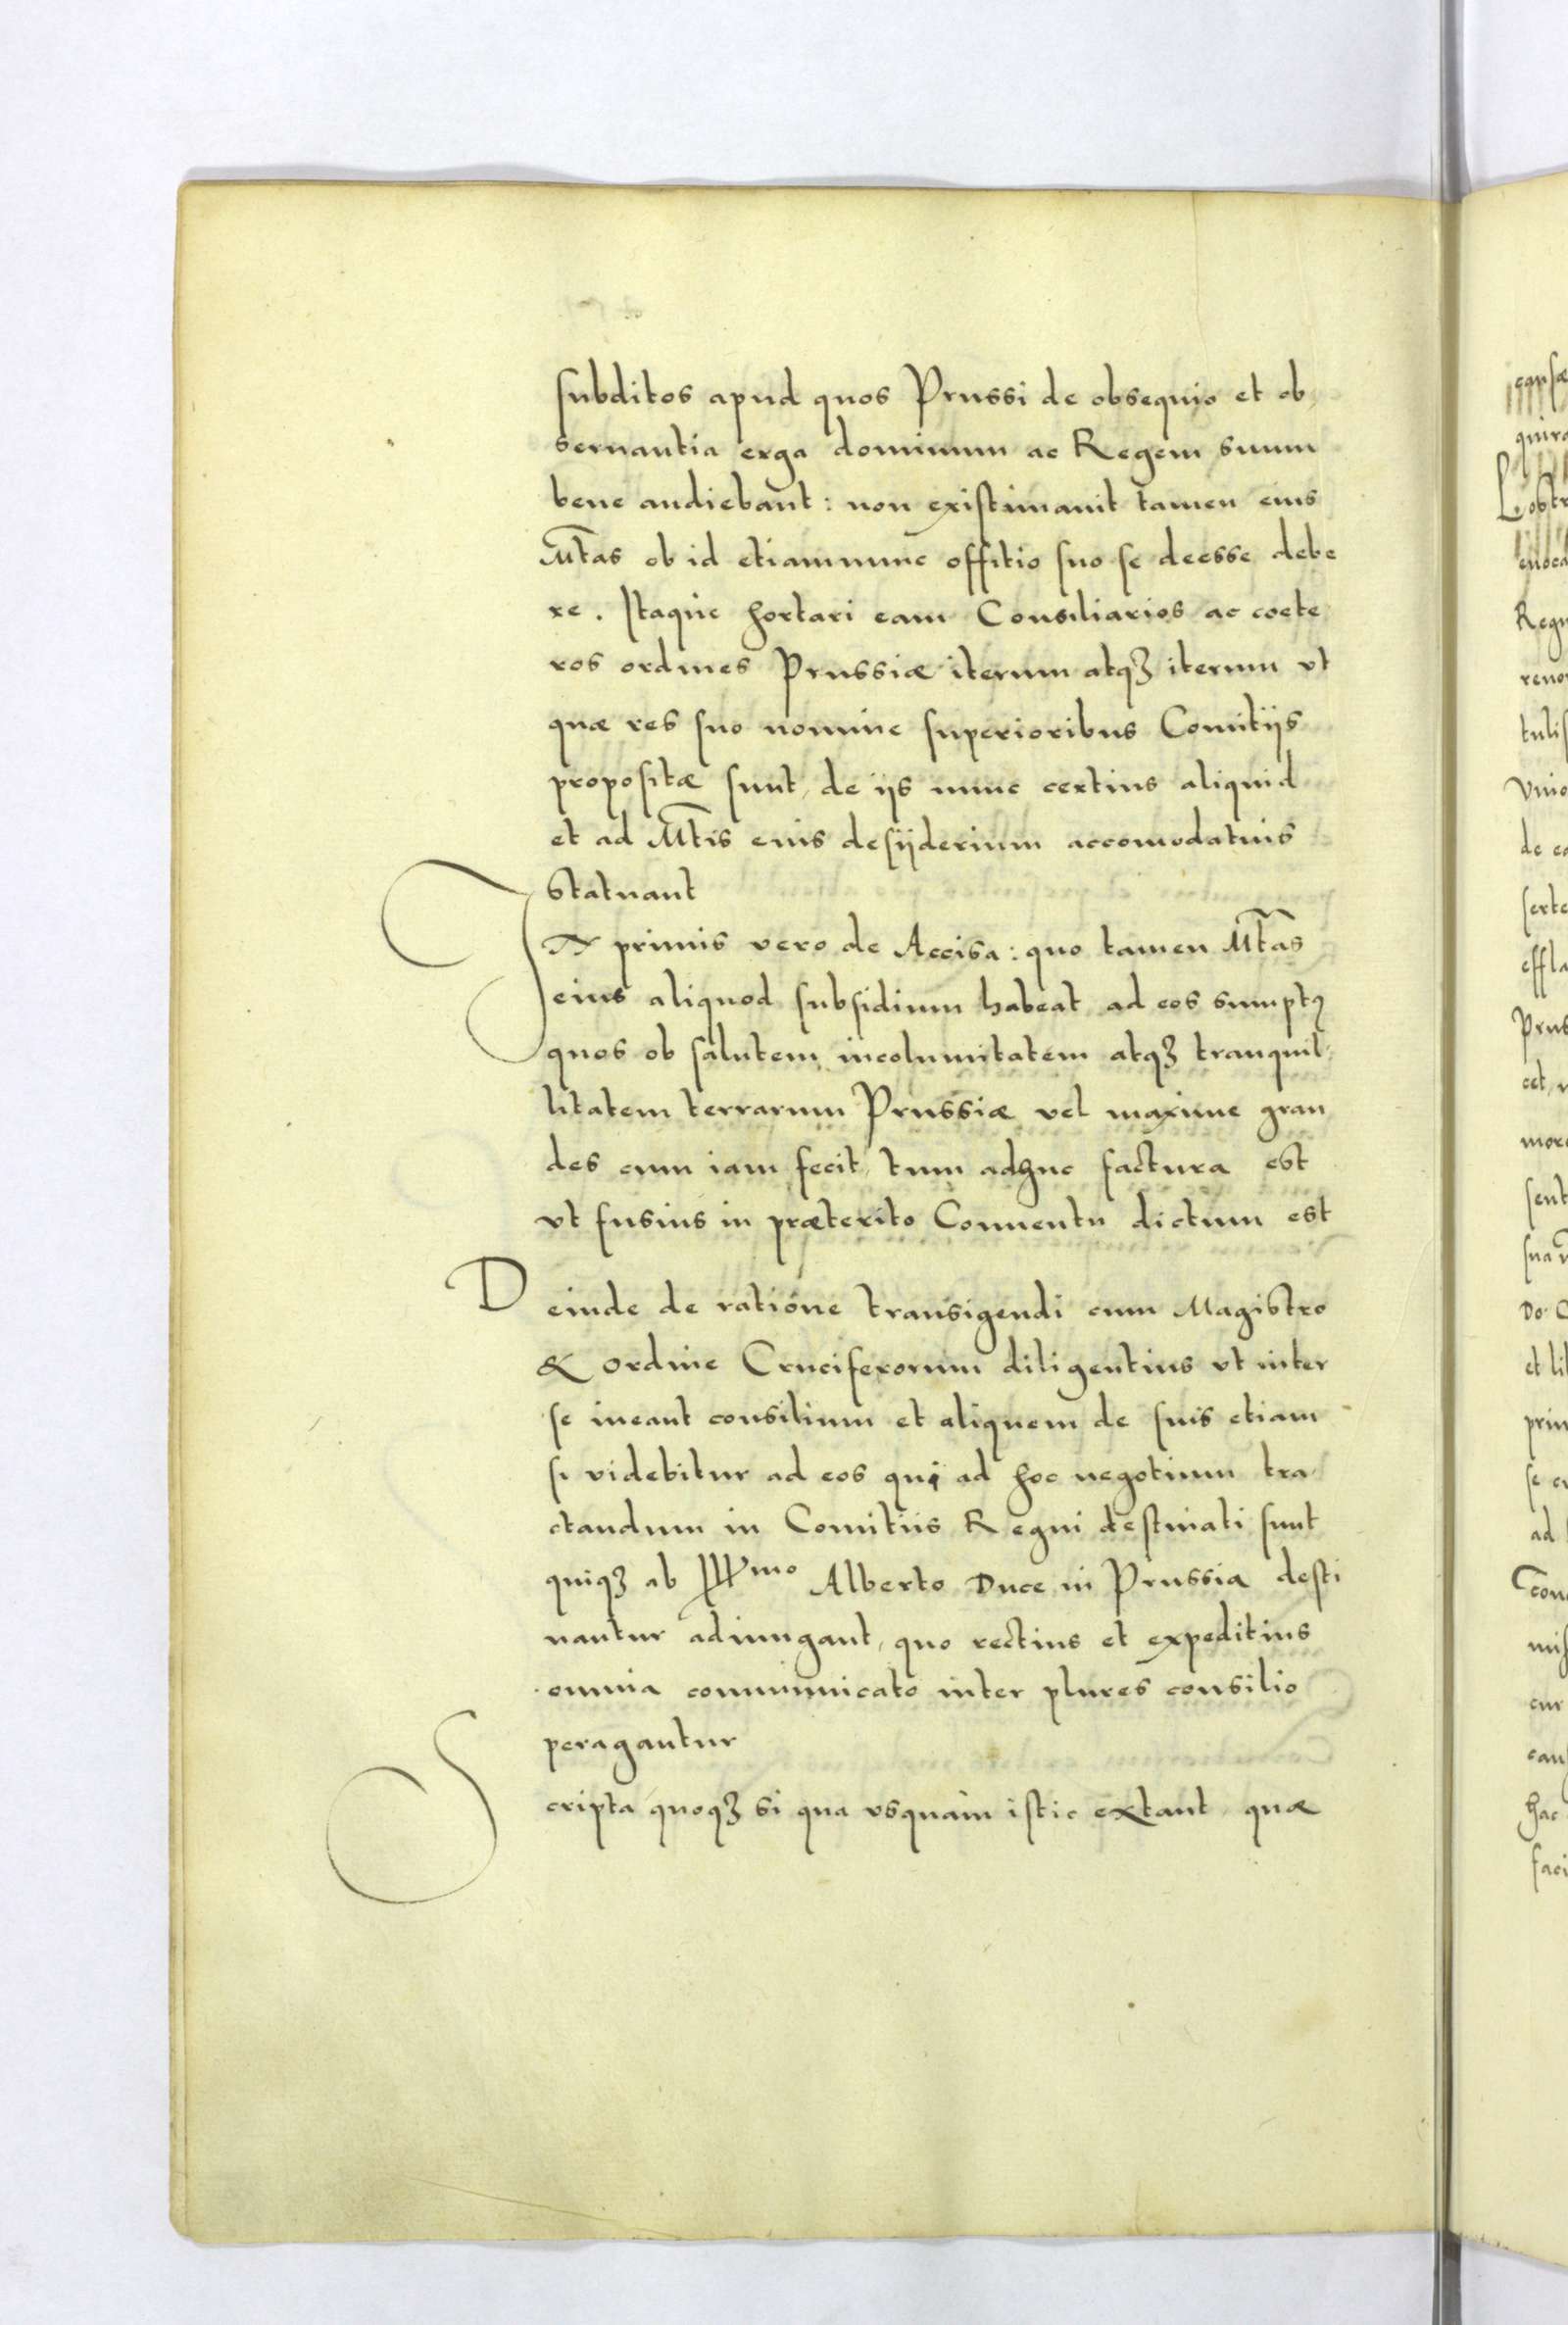 subditos apud quos Prussi de obsequio et ob,
seruantia erga dominum ac Regem suum
bene audiebant: non existimauit tamen eius
Mtas ob id etiamnunc offitio suo se deesse debe
re. Itaque hortari eam Consiliarios ac coete
ros ordines Prussiæ iterum atqȝ iterum vt
quæ res suo nomine superioribus Comitijs
propositæ sunt, de ijs nunc certius aliquid
et ad Mtis eius desijderium accomodatius
statuant
IN primis vero de Accisa: quo tamen Mtas
eius aliquod subsidium habeat ad eos sumptꝰ
quos ob salutem, incolumitatem atqȝ tranquil,
litatem terrarum Prussiæ vel maxime gran
des cum iam fecit, tum adhuc factura est
vt fusius in præterito Conuentu dictum est
Deinde de ratione transigendi cum Magistro
& ordine Cruciferorum diligentius vt inter
se ineant consilium et aliquem de suis etiam
si videbitur ad eos qui ad hoc negotium tra,
ctandum in Comitiis Regni destinati sunt
quiqȝ ab Illmo Alberto Duce in Prussia desti
nantur adiungant, quo rectius et expeditius
omnia communicato inter plures consilio
peragantur
Scripta quoqȝ si qua vsquam istic extant, quæ